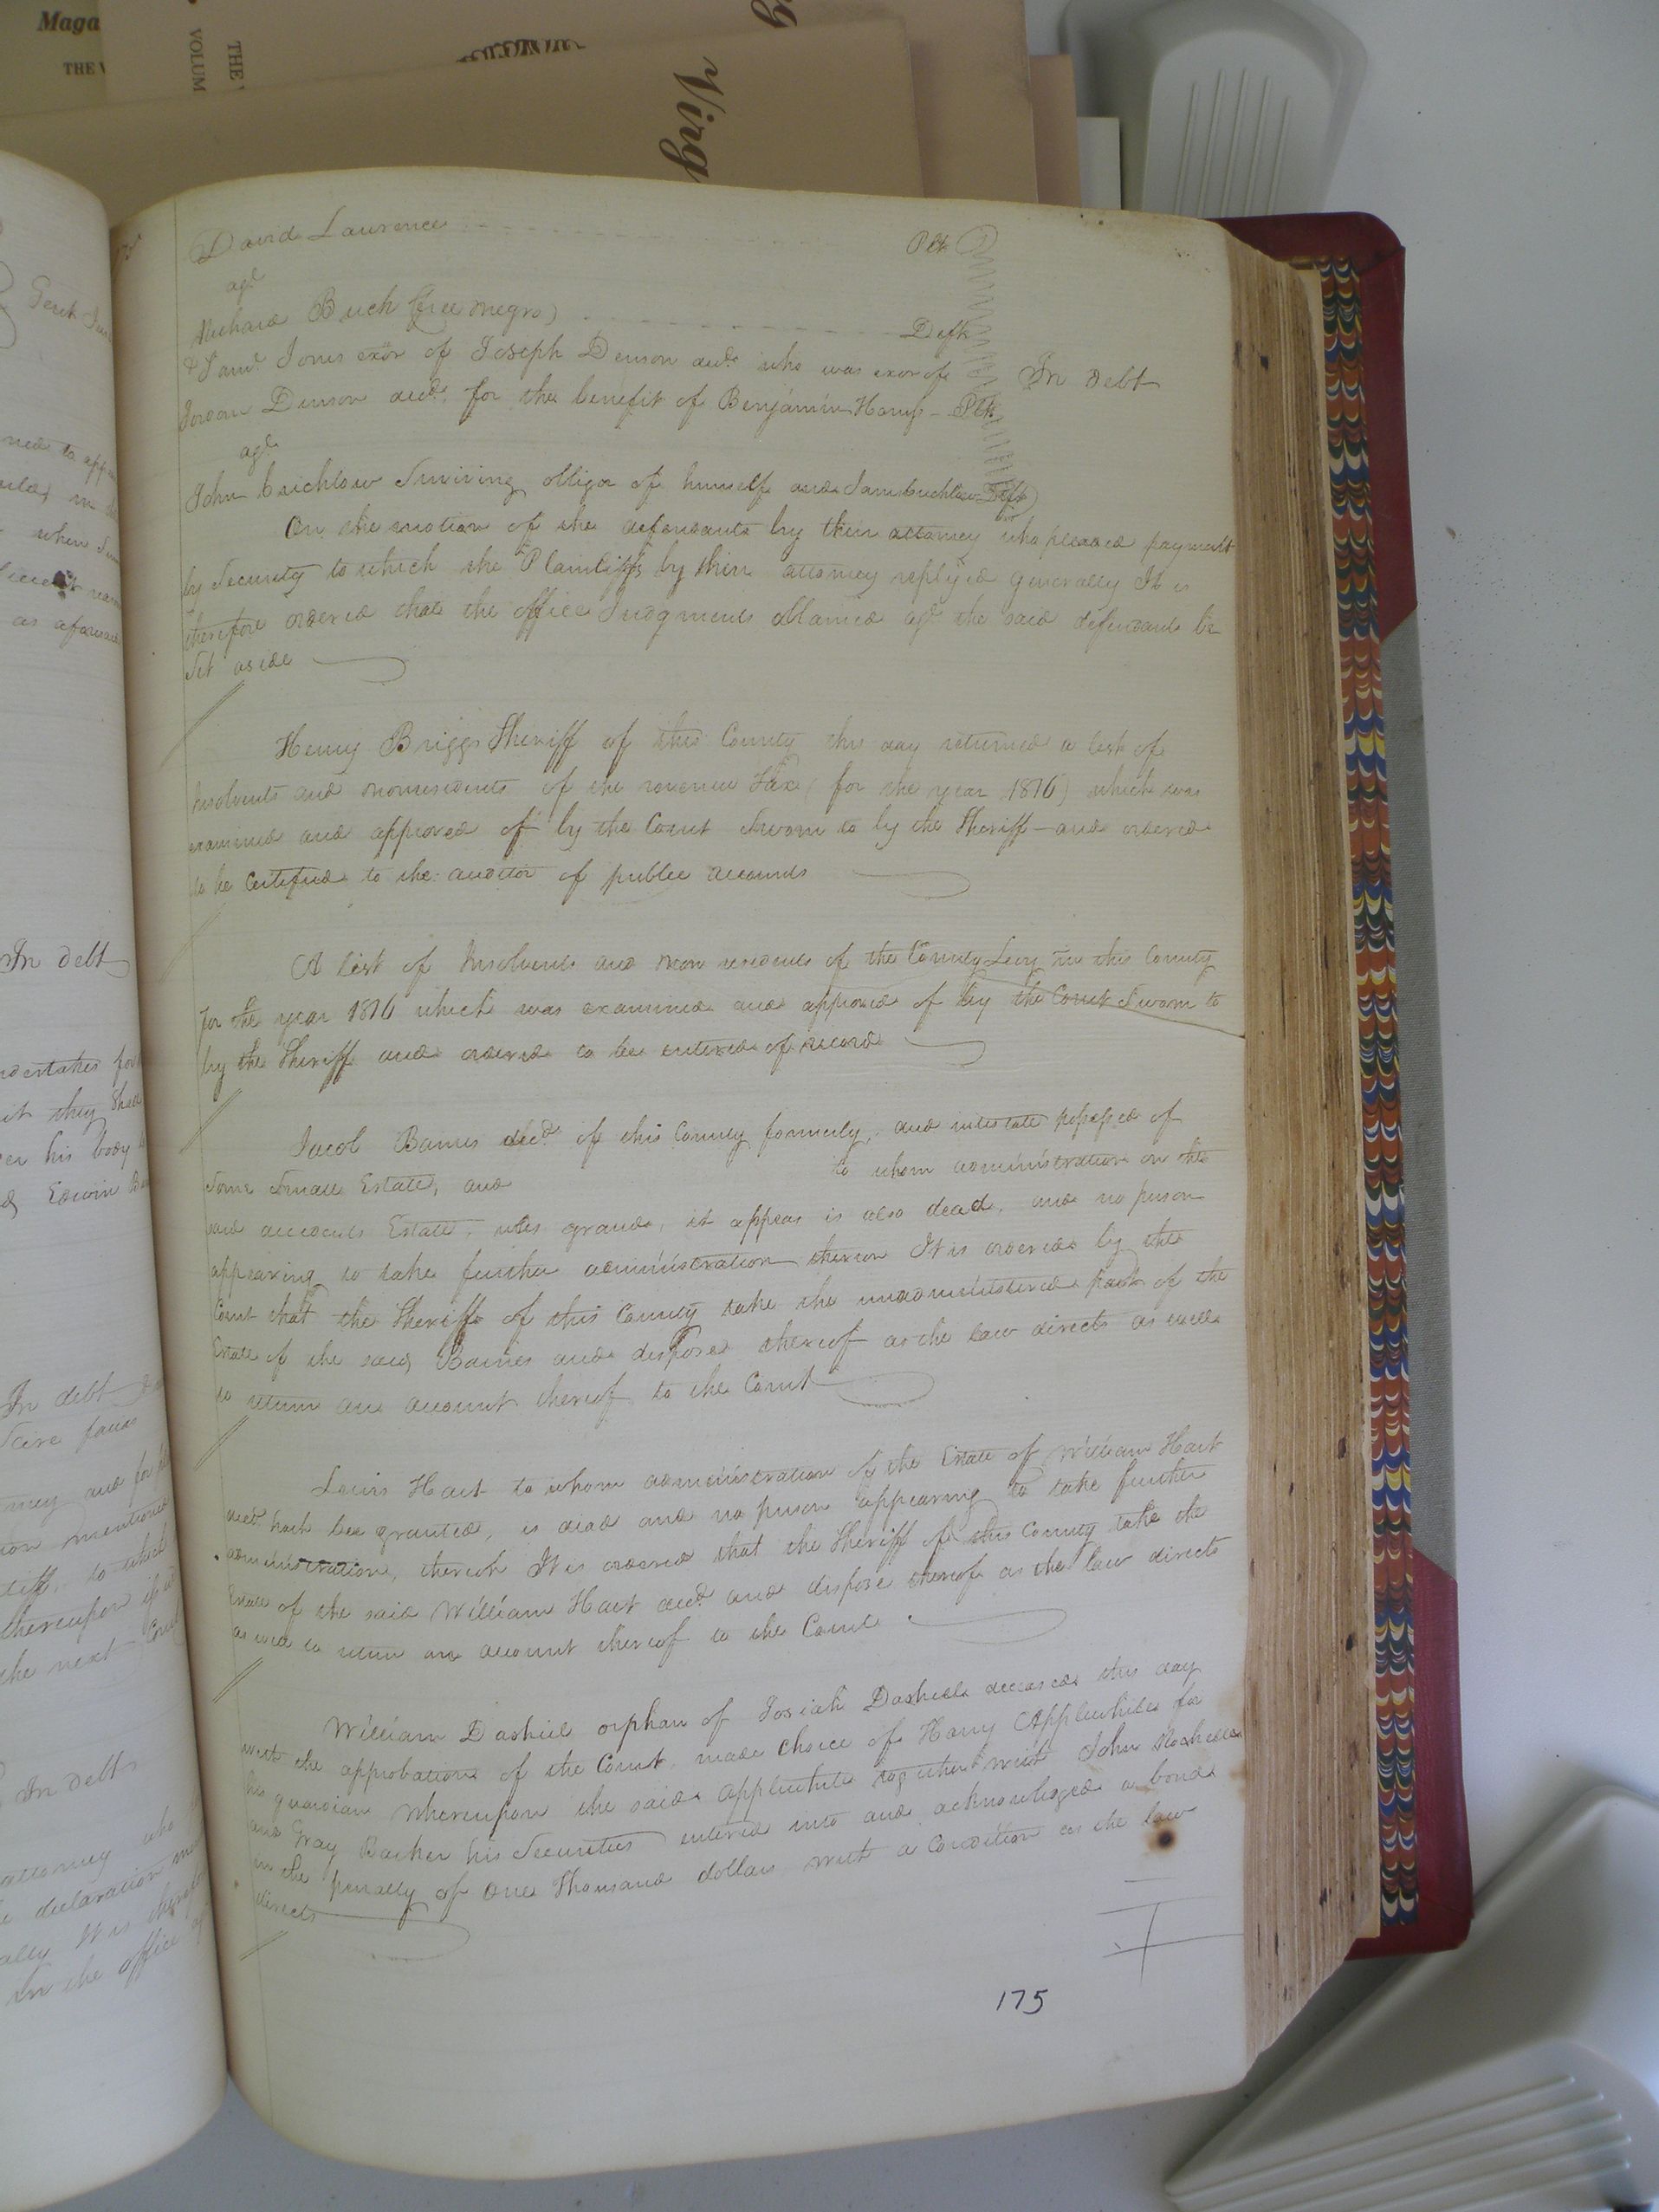 Maga
THE
VOLUM
THE
Virg
David Lawrence Plt
agt
Michael Buck (free negro) Deft
& Saml Jones exor of Joseph Denson decd who was exor of In debt
Jordan Denson decd for the benefit of Benjamin Harris - Plt
agt
John Crichlow Surviving obligor of himself and Sam Crichlow Deft
On the motion of the defendants by their attorney who pleaded payment
by Security to which the Plaintiffs by their attorney replyed generally It is
therefore ordered that the office Judgments obtained agt the said defendants be
Set aside
Henry Briggs Sheriff of this County this day returned a list of
Insolvents and nonresidents of the revenue Tax (for the year 1816) which was
examined and approved of by the Court Sworn to by the Sheriff - and ordered
to be Certified to the auditor of public accounts
A list of Insolvents and non residents of the County Levy in this County
for the year 1816 which was examined and approved of by the Court Sworn to
by the Sheriff and ordered to be entered of record
Jacob Barnes decd of this County formerly, and intestate possessed of
Some Small Estate, and to whom administration on the
said decedents Estate, was granted, it appears is also dead, and no person
appearing to take further administration thereon It is ordered by the
Court that the Sheriff of this County take the unadministered part of the
Estate of the said Barnes and dispose thereof as the law directs as well as
to return an account thereof to the Court
Lewis Hart to whom administration of the Estate of William Hart
decd hath been granted, is dead and no person appearing to take further
administration, thereon It is ordered that the Sheriff of this County take the
Estate of the said William Hart decd and dispose thereof as the law directs
as well to return an account thereof to the Court
William Dashiel orphan of Josiah Dashiell deceased this day
with the approbation of the Court, made choice of Harry Applewhite for
his guardian Whereupon the said Applewhite together with John Rochelle
and Gray Barker his Securities entered into and acknowledged a bond
in the penalty of One Thousand dollars with a Condition as the law
directs
175
In debt
In debt
In debt